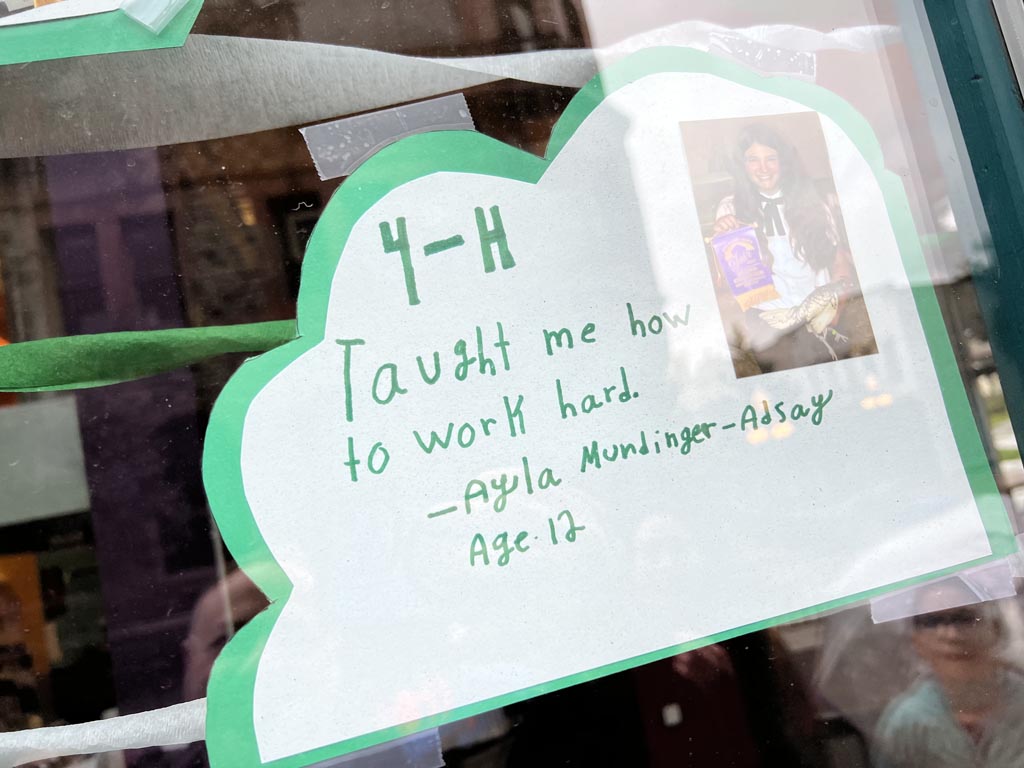 4-H
Taught me how
to work hard.
-Ayla Mundinger-Adsay
Age 12